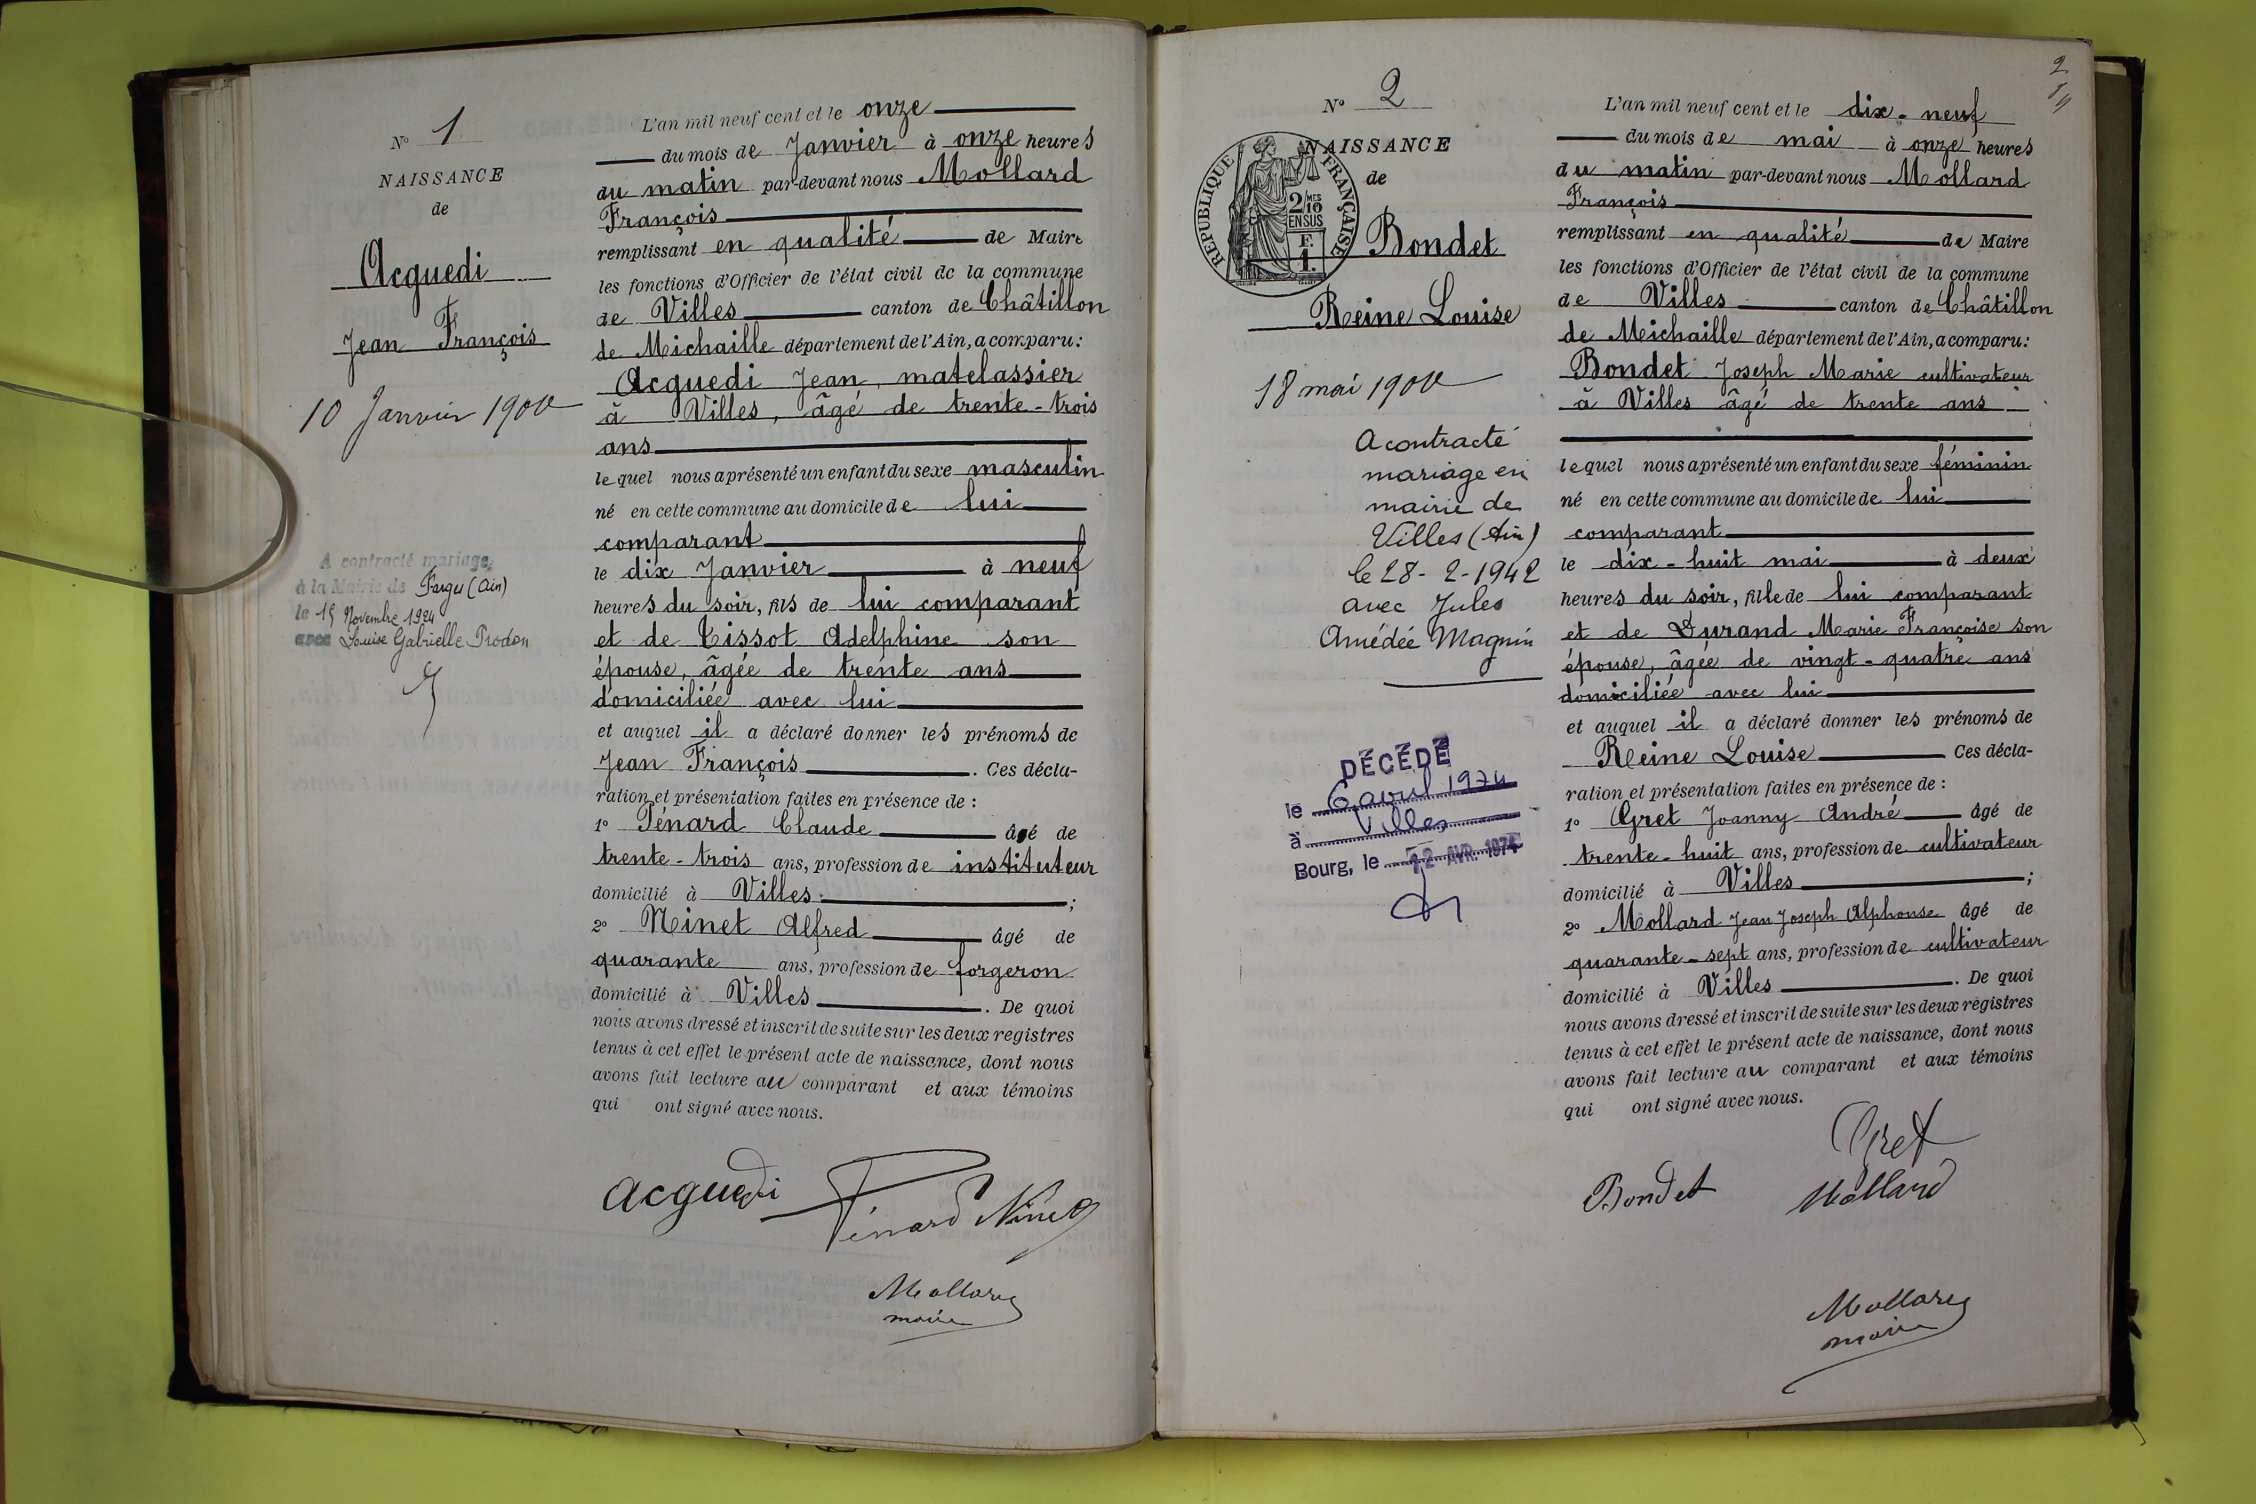 N° 1
NAISSANCE
de
Acguedi
Jean François
10 Janvier 1900
A contracté mariage,
à la Mairie de Farges (Ain)
le 15 Novembre 1924
avec Louise Gabrielle Prodon
L'an mil neuf cent et le onze
du mois de Janvier à onze heures
du matin par-devant nous Mollard
François
remplissant en qualité de Maire
les fonctions d'Officier de l'état civil de la commune
de Villes canton de Châtillon
de Michaille département de l'Ain, a comparu:
Acguedi Jean, matelassier
à Villes, âgé de trente-trois
ans
lequel nous a présenté un enfant du sexe masculin
né en cette commune au domicile de lui
comparant
le dix Janvier à neuf
heures du soir, fils de lui comparant
et de Tissot Adelphine son
épouse, âgée de trente ans
domiciliée avec lui
et auquel il a déclaré donner les prénoms de
Jean François . Ces décla-
ration et présentation faites en présence de :
1° Pénard Claude âgé de
trente-trois ans, profession de instituteur
domicilié à Villes ;
2° Ninet Alfred âgé de
quarante ans, profession de forgeron
domicilié à Villes . De quoi
nous avons dressé et inscrit de suite sur les deux registres
tenus à cet effet le présent acte de naissance, dont nous
avons fait lecture au comparant et aux témoins
qui ont signé avec nous.
Acguedi Pénard Ninet
Mollard
maire
2
N° 2
NAISSANCE
de
RÉPUBLIQUE FRANÇAISE
2/10
MES
EN SUS
F.
1.
Bondet
Reine Louise
18 mai 1900
A contracté
mariage en
mairie de
Villes (Ain)
le 28-2-1942
avec Jules
Amédée Magnin
DÉCÉDÉ
le 6 avril 1974
à Villes
Bourg, le 12 AVR. 1974
L'an mil neuf cent et le dix-neuf
du mois de mai à onze heures
du matin par-devant nous Mollard
François
remplissant en qualité de Maire
les fonctions d'Officier de l'état civil de la commune
de Villes canton de Châtillon
de Michaille département de l'Ain, a comparu:
Bondet Joseph Marie cultivateur
à Villes âgé de trente ans
lequel nous a présenté un enfant du sexe féminin
né en cette commune au domicile de lui
comparant
le dix-huit mai à deux
heures du soir, fille de lui comparant
et de Durand Marie Françoise son
épouse, âgée de vingt-quatre ans
domiciliée avec lui
et auquel il a déclaré donner les prénoms de
Reine Louise Ces décla-
ration et présentation faites en présence de :
1° Gret Joanny André âgé de
trente-huit ans, profession de cultivateur
domicilié à Villes ;
2° Mollard Jean Joseph Alphonse âgé de
quarante-sept ans, profession de cultivateur
domicilié à Villes . De quoi
nous avons dressé et inscrit de suite sur les deux registres
tenus à cet effet le présent acte de naissance, dont nous
avons fait lecture au comparant et aux témoins
qui ont signé avec nous.
Gret
Bondet Mollard
Mollard
maire